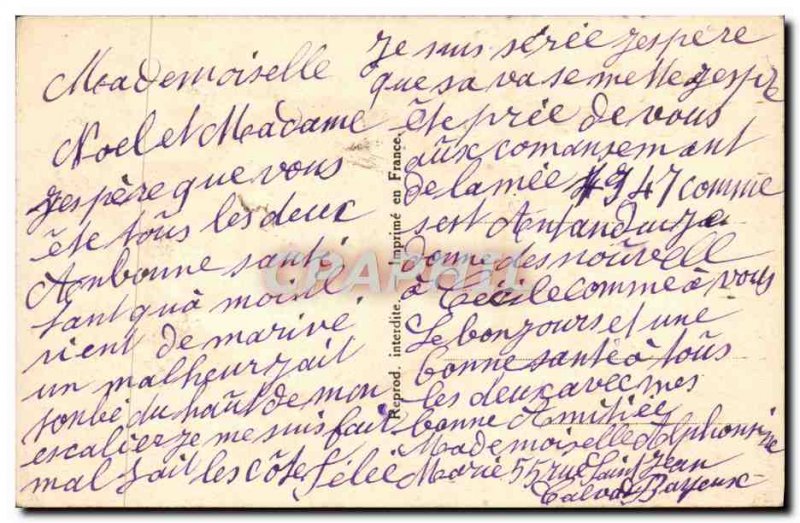 Mademoiselle
Noel et Madame
jespère que vous
ête tous les deux
Anbonne santé
tant quà moi
vient de marivé
un malheur jait
tonbé du haut de mon
escalier je me suis fait
mal jait les côte félée
je suis sérée jespère
que sa va se mette jespr
ête prée de vous
aux comansement
de la mée 1947 comme
sest Antandu je
donne des nouvelle
à Cécile comme à vous
Le bonjours et une
bonne santé à tous
les deux avec mes
bonne Amitiée
Mademoiselle Alphonsine
Marie 55 rue Saint Jean
Calvad Bayeux
Reprod. interdite. Imprimé en France.
CPAPHIL